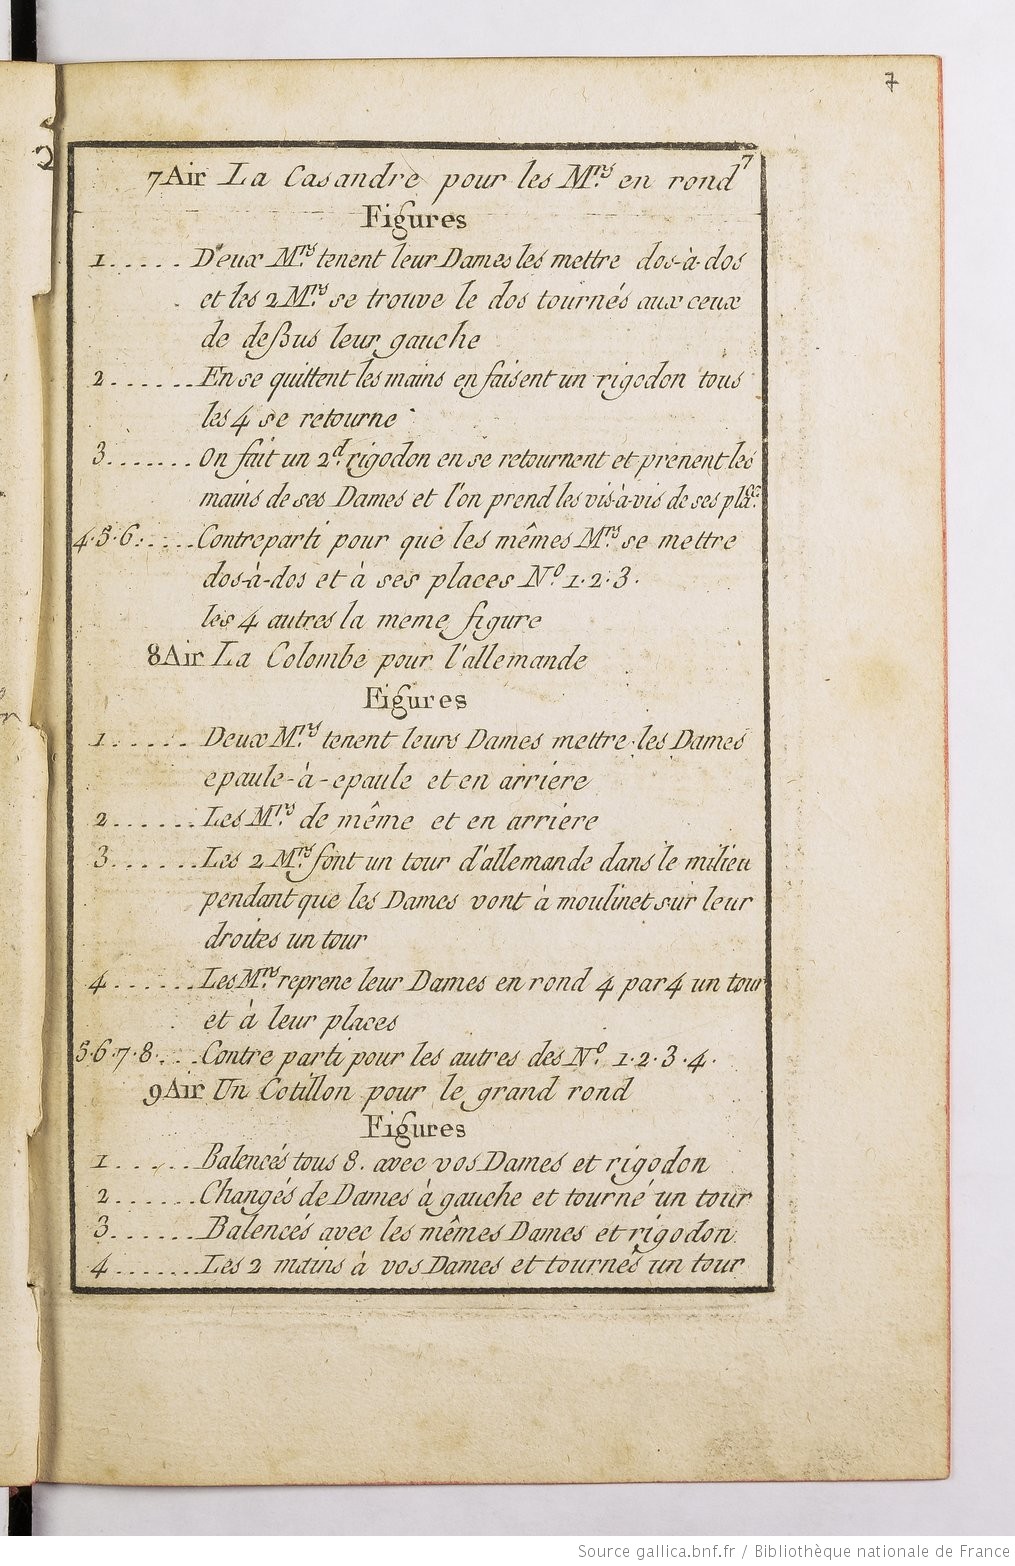 7
7
7 Air La Casandre pour les Mrs. en rond
Figures
1...... Deux Mrs. tenent leur Dames les mettre dos-à-dos
et les 2 Mrs. se trouve le dos tournés aux ceux
de deßus leur gauche
2....... En se quittent les mains en faisent un rigodon tous
les 4 se retourne
3....... On fait un 2d. rigodon en se retournent et prenent les
mains de ses Dames et l'on prend les vis-à-vis de ses plac.
4.5.6..... Contreparti pour que les mêmes Mrs. se mettre
dos-à-dos et à ses places No. 1.2.3.
les 4 autres la meme figure
8 Air La Colombe pour l'allemande
Figures
1...... Deux Mrs. tenent leurs Dames mettre les Dames
epaule-à-epaule et en arriere
2....... Les Mrs. de même et en arriere
3....... Les 2 Mrs. font un tour d'allemande dans le milieu
pendant que les Dames vont à moulinet sur leur
droites un tour
4....... Les Mrs. reprene leur Dames en rond 4 par 4 un tour
et à leur places
5.6.7.8.... Contre parti pour les autres des No. 1.2.3.4.
9 Air Un Cotillon pour le grand rond
Figures
1...... Balencés tous 8. avec vos Dames et rigodon
2....... Changés de Dames à gauche et tourné un tour
3....... Balencés avec les mêmes Dames et rigodon.
4....... Les 2 mains à vos Dames et tournés un tour
Source gallica.bnf.fr / Bibliothèque nationale de France